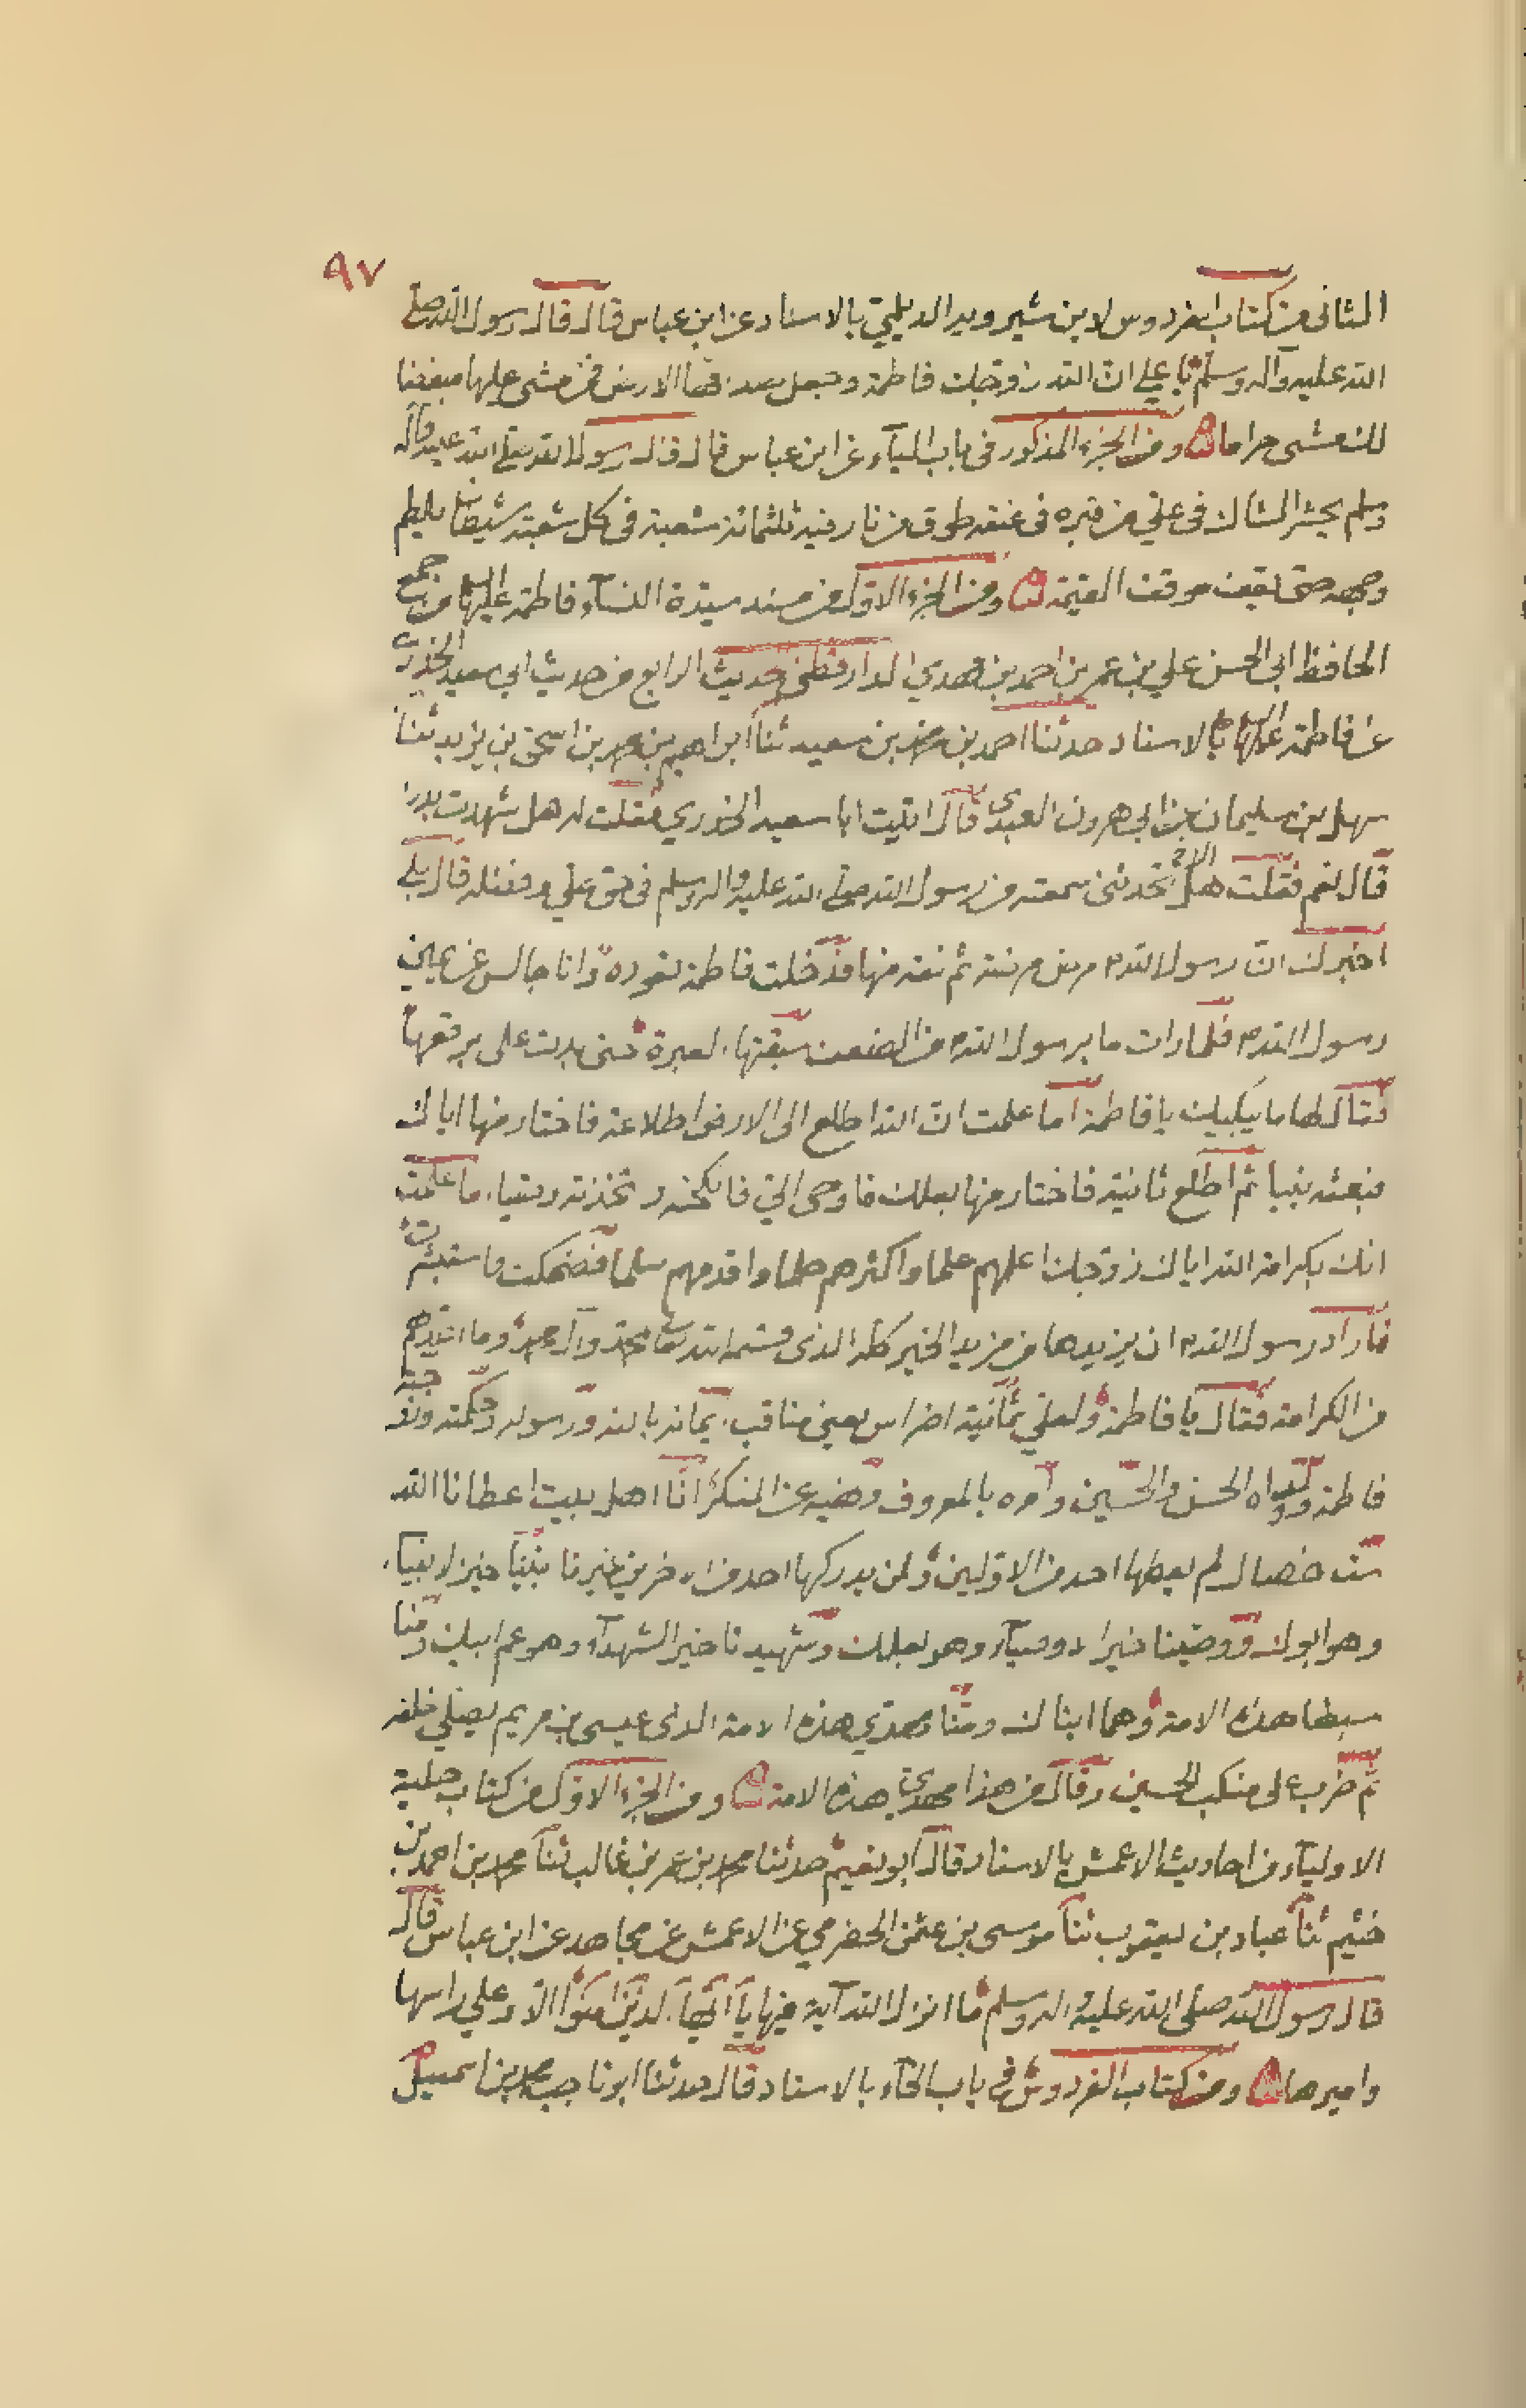 ٩٧
الثانى من كتاب الفردوس لابن شيرويه الديلمي بالاسناد عن ابن عباس قال قال رسول الله صلى
الله عليه وآله وسلم يا علي ان الله زوجك فاطمة وجعل صداقها الارض فمن مشى عليها مبغضا
لك مشى حراما ومن الجزء المذكور فى باب الياء عن ابن عباس قال قال رسول الله صلى الله عليه وآله
وسلم يحشر الشاك فى علي من قبره فى عنقه طوق من نار فيه ثلثمائة شعبة فى كل شعبة شيطان يلطم
وجهه حتى يقف موقف القيمة ومن الجزء الاول من مسند سيدة النسآء فاطمة عليها السلام من جمع
الحافظ ابى الحسن علي بن عمر بن احمد بن مهدي الدارقطنى حديث الرابع من حديث ابي سعيد الخدري
عن فاطمة عليها السلام بالاسناد حدثنا احمد بن محمد بن سعيد ثنا ابراهيم بن محمد بن اسحق بن يزيد ثنا
سهل بن سليمان عن ابى هرون العبدى قال اتيت ابا سعيد الخدري فقلت له هل شهدت بدرا
قال نعم فقلت هل الا تحدثنى سمعته من رسول الله صلى الله عليه واله وسلم فى حق علي وفضله قال بلى
اخبرك ان رسول الله م مرض مرضة ثم نقه منها فدخلت فاطمة تعوده وانا جالس عن يمين
رسول الله م فلما رات ما برسول الله م من الضعف سبقتها العبرة حتى بدت على برقعها
فقال لها ما يبكيك يا فاطمة اما علمت ان الله اطلع الى الارض اطلاعة فاختار منها اباك
فبعثه نبيا ثم اطلع ثانية فاختار منها بعلك فاوحى الي فانكحته واتخذته وصيا اما علمت
انك بكرامة الله اياك زوجك اعلمهم علما واكثرهم حلما واقدمهم سلما فضحكت واستبشرت
فاراد رسول الله م ان يزيدها من مزيد الخير كله الذى قسمه الله تعا محمد وآل محمد وما اعد لهم
من الكرامة فقال يا فاطمة ولعلي ثمانية اضراس يعنى مناقب ايمانه بالله ورسوله وحكمته وزوجته
فاطمة وولداه الحسن والحسين وامره بالمعروف ونهيه عن المنكر انا اهل بيت اعطانا الله
ست خصال لم يعطها احد من الاولين ولن يدركها احد من الاخرين غيرنا نبينا خير الانبيآء
وهو ابوك ووصينا خير الاوصيآء وهو بعلك وشهيدنا خير الشهدآء وهو عم ابيك ومنا
سبطا هذه الامة وهما ابناك ومنا مهدي هذه الامة الذى عيسى بن مريم يصلي خلفه
ثم ضرب على منكب الحسين وقال من هذا مهدي هذه الامة ومن الجزء الاول من كتاب حلية
الاوليآء من احاديث الاعمش بالاسناد قال ابو نعيم حدثنا محمد بن عمر بن غالب ثنا محمد بن احمد بن
خثيم ثنا عباد بن يعقوب ثنا موسى بن عثمن الحضرمي عن الاعمش عن مجاهد عن ابن عباس قال
قال رسول الله صلى الله عليه واله وسلم ما انزل الله آية فيها يا ايها الذين امنوا الا وعلي راسها
واميرها ومن كتاب الفردوس فى باب الحآء بالاسناد قال حدثنا ابو ناجب محمد بن اسمعيل